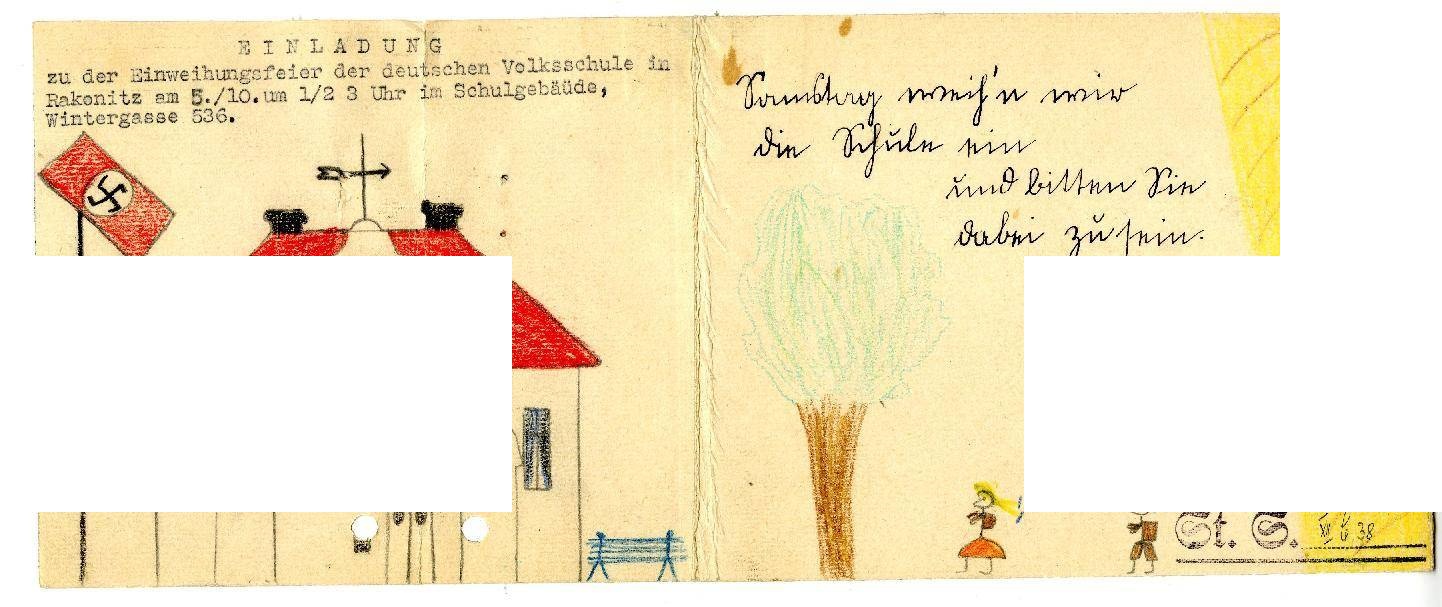 EINLADUNG
zu der Einweihungsfeier der deutschen Volksschule in
Rakonitz am 5./10.um 1/2 3 Uhr im Schulgebäude,
Wintergasse 536.
Samstag weih'n wir
die Schule ein
und bitten Sie
dabei zu sein.
St. A.
38